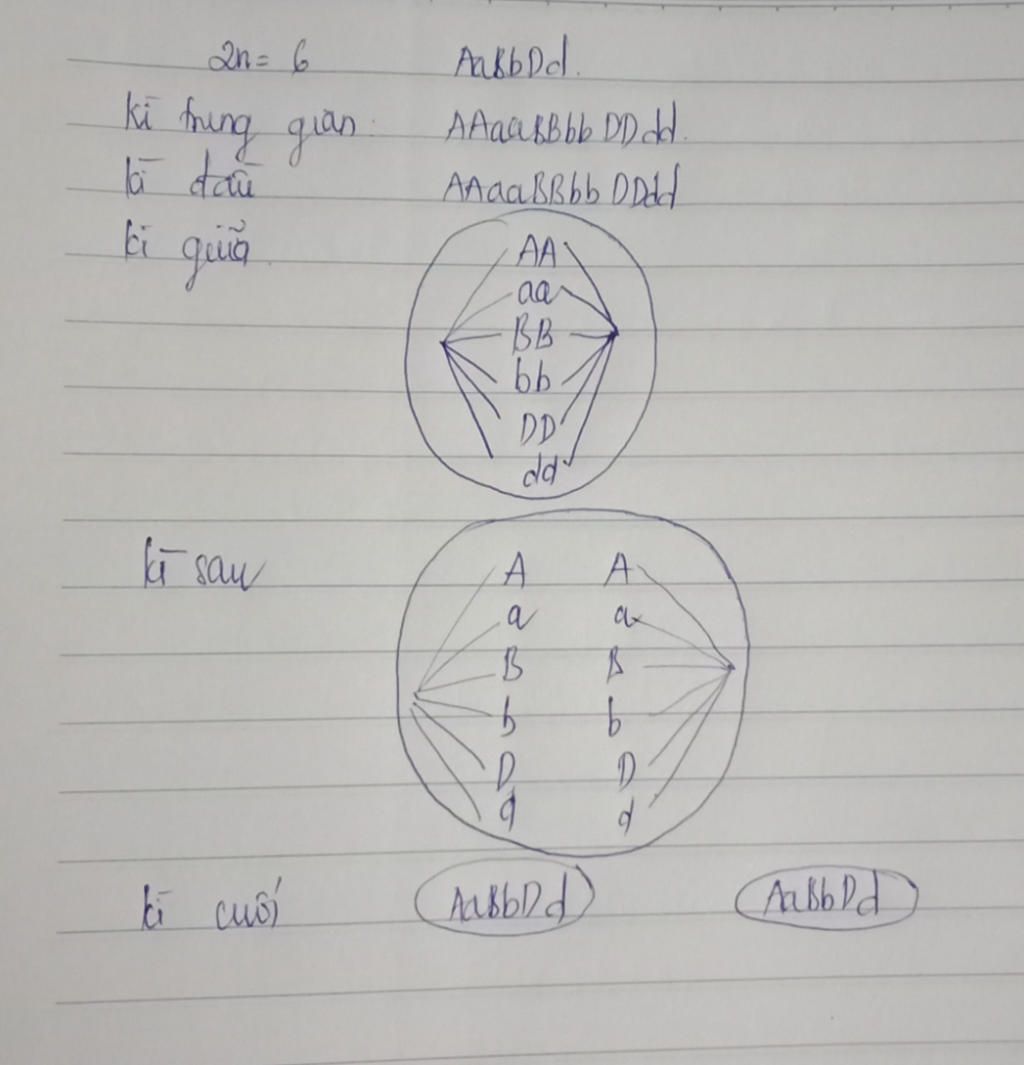 2n = 6 AaBbDd.
kì trung gian: AAaaBBbbDDdd.
kì đầu AAaaBBbbDDdd
kì giữa
AA
aa
BB
bb
DD
dd
kì sau A A
a a
B B
b b
D D
d d
kì cuối AaBbDd AaBbDd